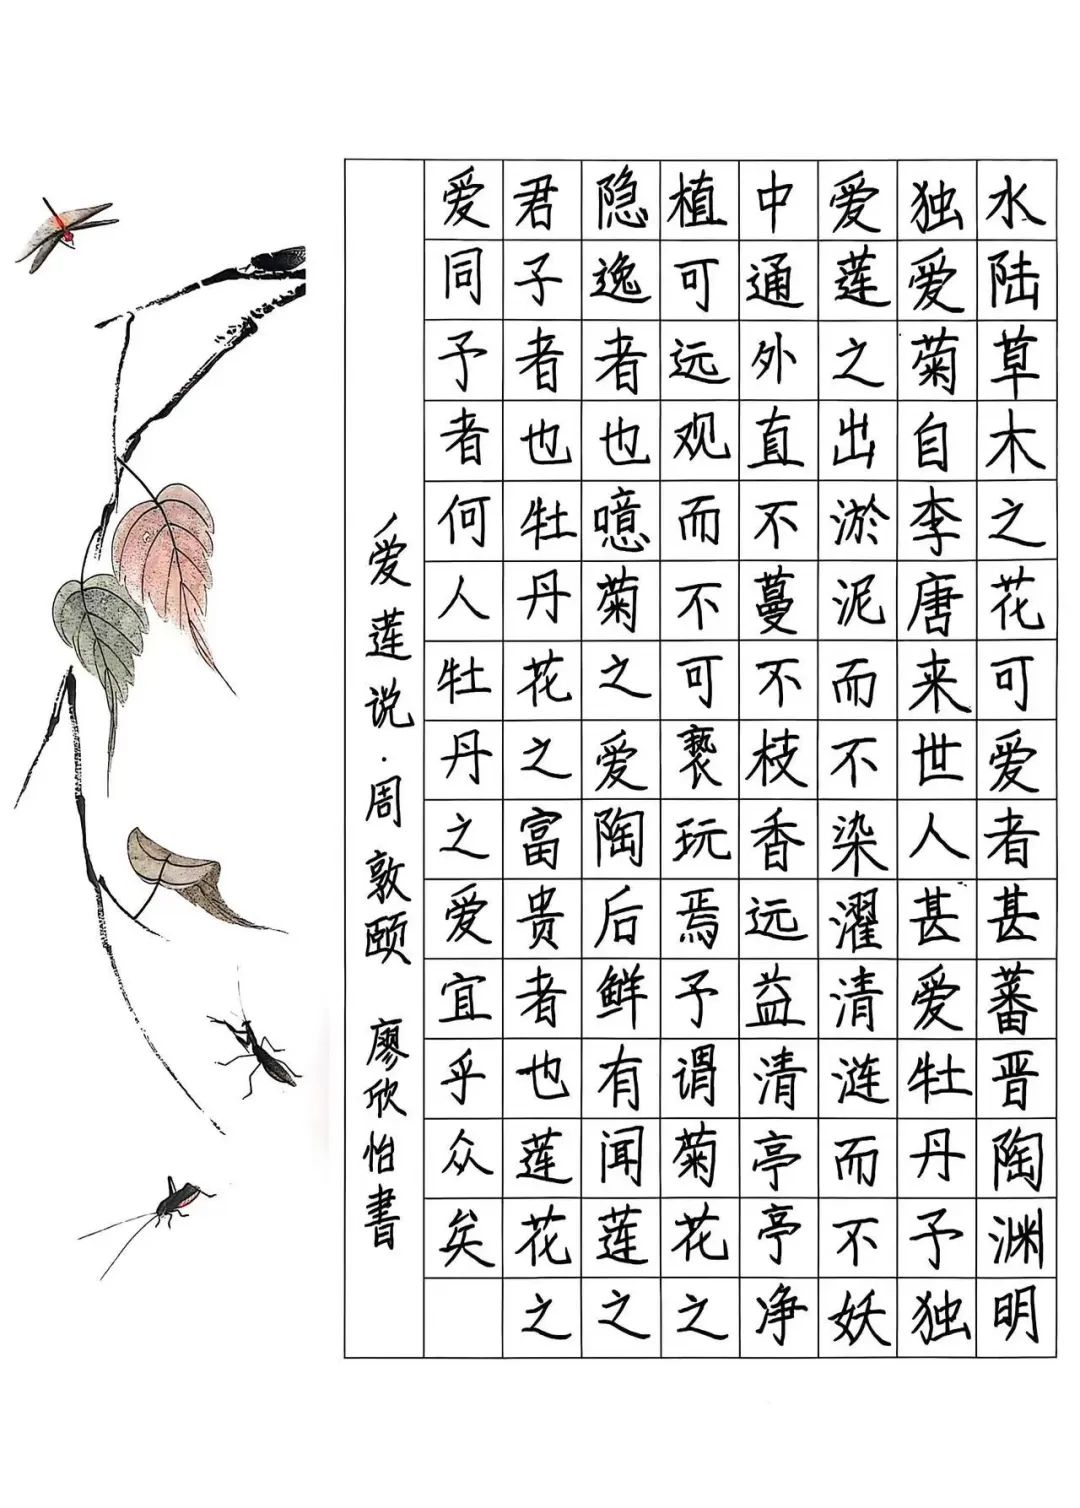 水陆草木之花可爱者甚蕃晋陶渊明
独爱菊自李唐来世人甚爱牡丹予独
爱莲之出淤泥而不染濯清涟而不妖
中通外直不蔓不枝香远益清亭亭净
植可远观而不可亵玩焉予谓菊花之
隐逸者也噫菊之爱陶后鲜有闻莲之
君子者也牡丹花之富贵者也莲花之
爱同予者何人牡丹之爱宜乎众矣
爱莲说·周敦颐 廖欣怡書